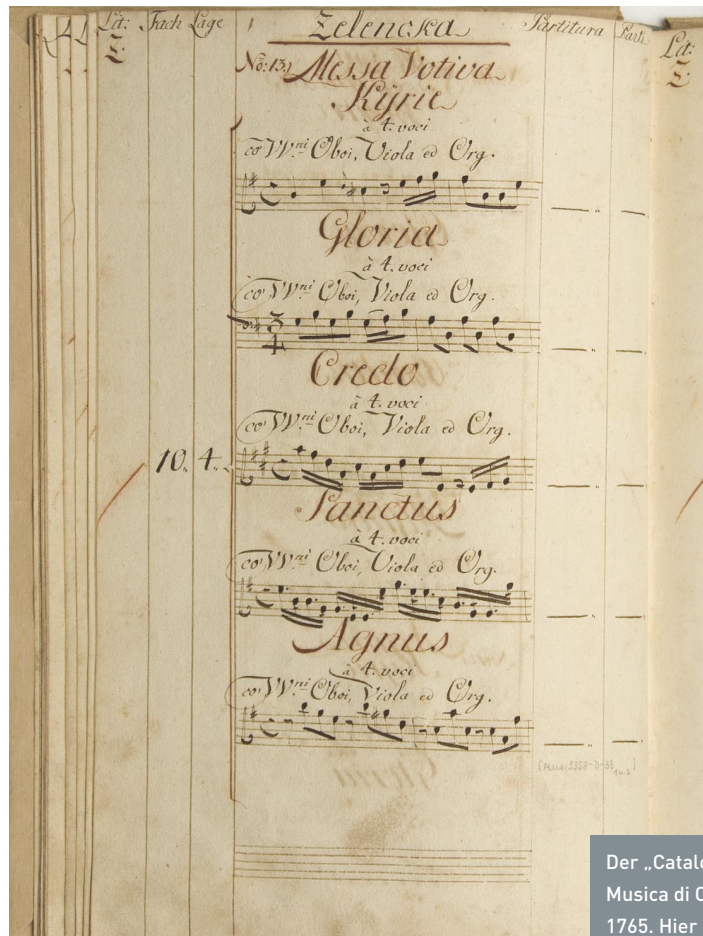 Lit: Fach Lage Zelencka Partitura Parti Lit:
Z: Z:
No: 13. Messa Votiva
Kÿrie
à 4. voci
co VVni Oboi, Viola ed Org.
Gloria
à 4. voci
co VVni Oboi, Viola ed Org.
3
4
Credo
à 4. voci
co VVni Oboi, Viola ed Org.
10. 4.
Sanctus
à 4. voci
co VVni Oboi, Viola ed Org.
Agnus
à 4. voci
co VVni Oboi, Viola ed Org.
Der „Catalo
Musica di C
1765. Hier